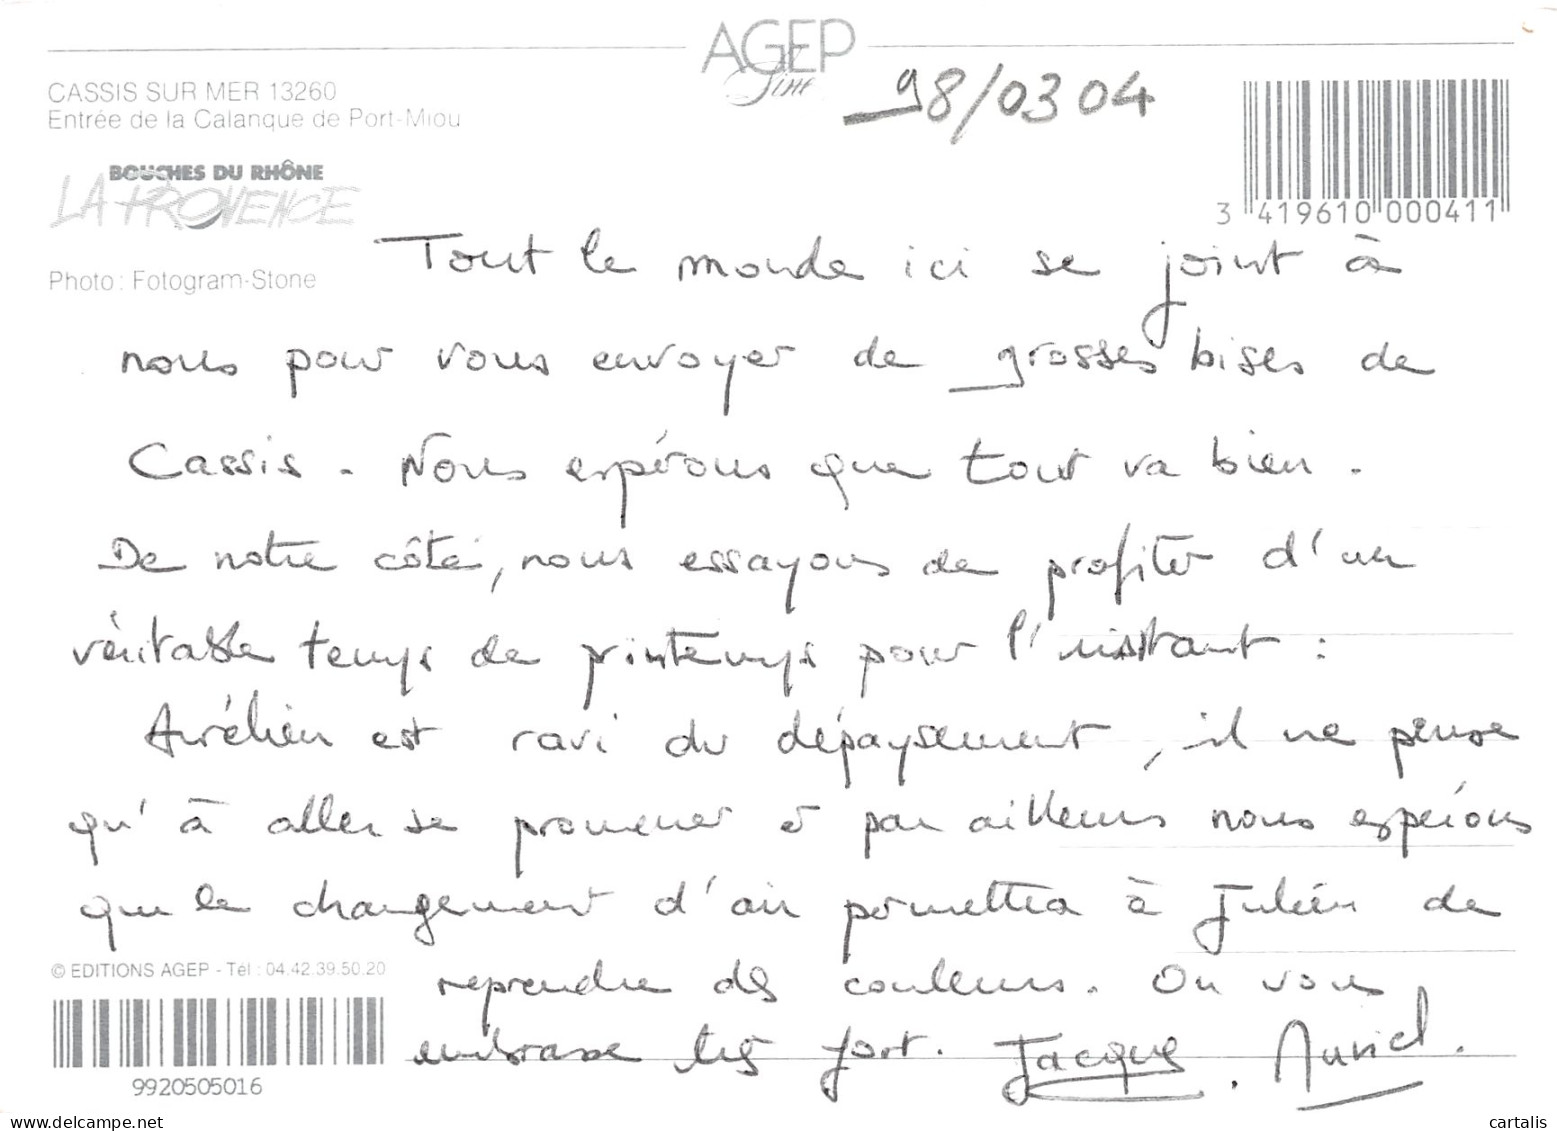 AGEP
Line
CASSIS SUR MER 13260
Entrée de la Calanque de Port-Miou
98/03 04
BOUCHES DU RHÔNE
LA PROVENCE
3 419610 000411
Photo : Fotogram-Stone
Tout le monde ici se joint à
nous pour vous envoyer de grosses bises de
Cassis. Nous espérons que tout va bien.
De notre côté, nous essayons de profiter d'un
véritable temps de printemps pour l'instant :
Aurélien est ravi du dépaysement, il ne pense
qu'à aller se promener et par ailleurs nous espérons
que le changement d'air permettra à Julien de
reprendre des couleurs. On vous
embrasse très fort. Jacques. Muriel.
© EDITIONS AGEP - Tél : 04.42.39.50.20
9920505016
cartalis
www.delcampe.net